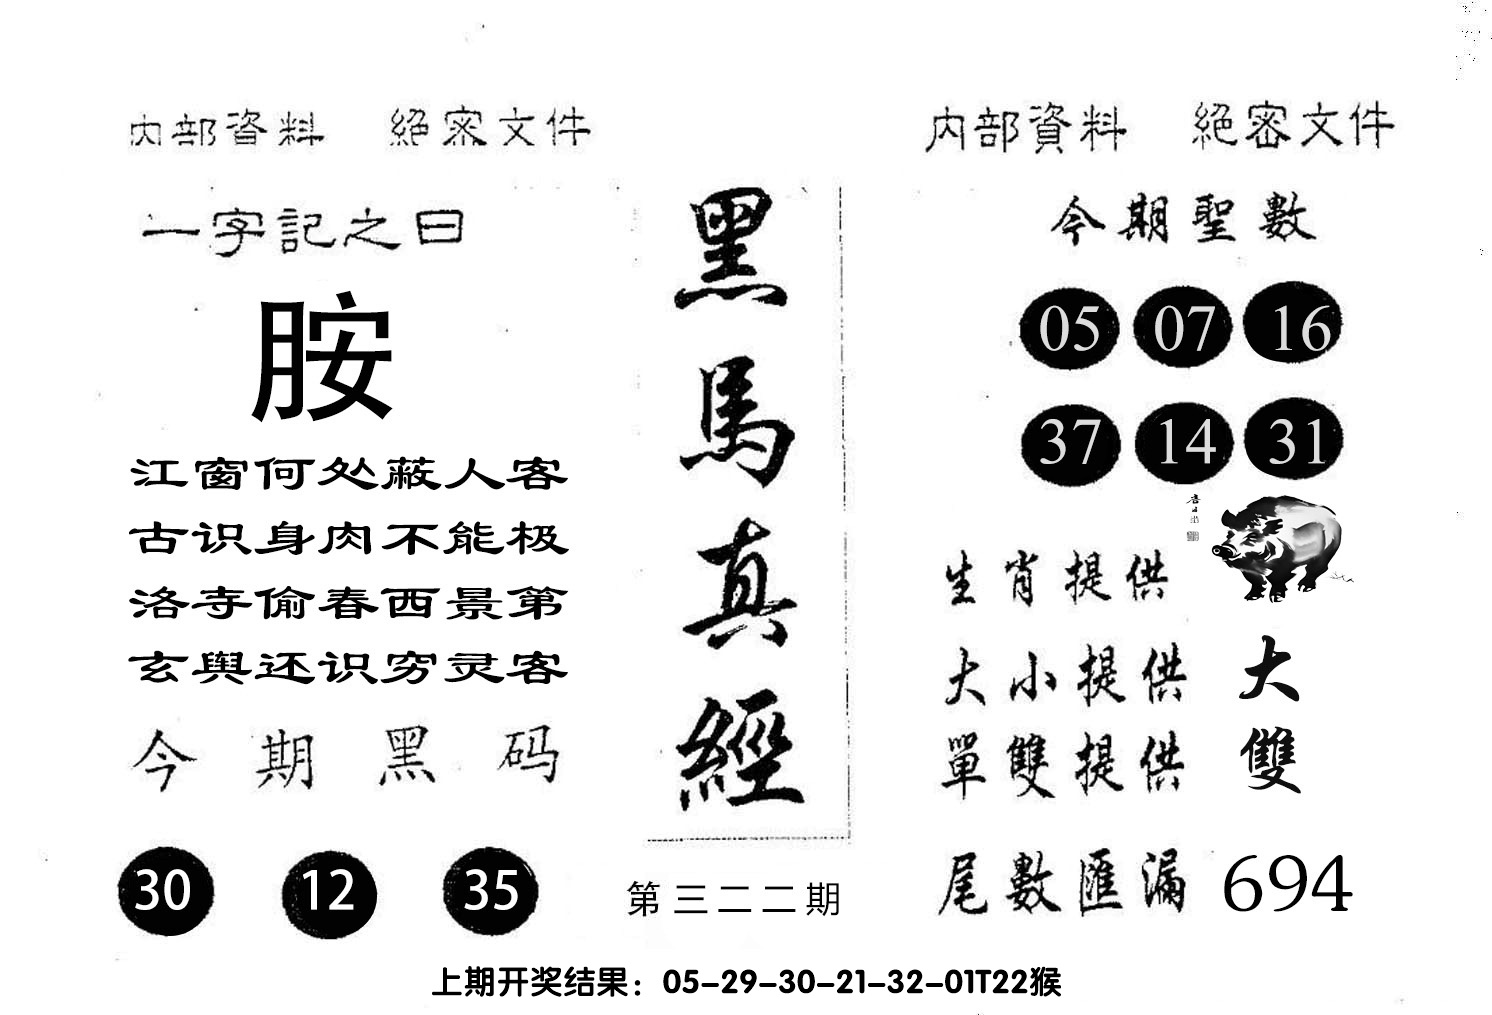 内部資料 絕密文件
一字記之曰
胺
江窗何处蔽人客
古识身肉不能极
洛寺偷春西景第
玄舆还识穷灵客
今期黑码
30 12 35
黑馬真經
第三二二期
内部資料 絕密文件
今期聖數
05 07 16
37 14 31
生肖提供
大小提供 大
單雙提供 雙
尾數匯漏 694
上期开奖结果：05-29-30-21-32-01T22猴